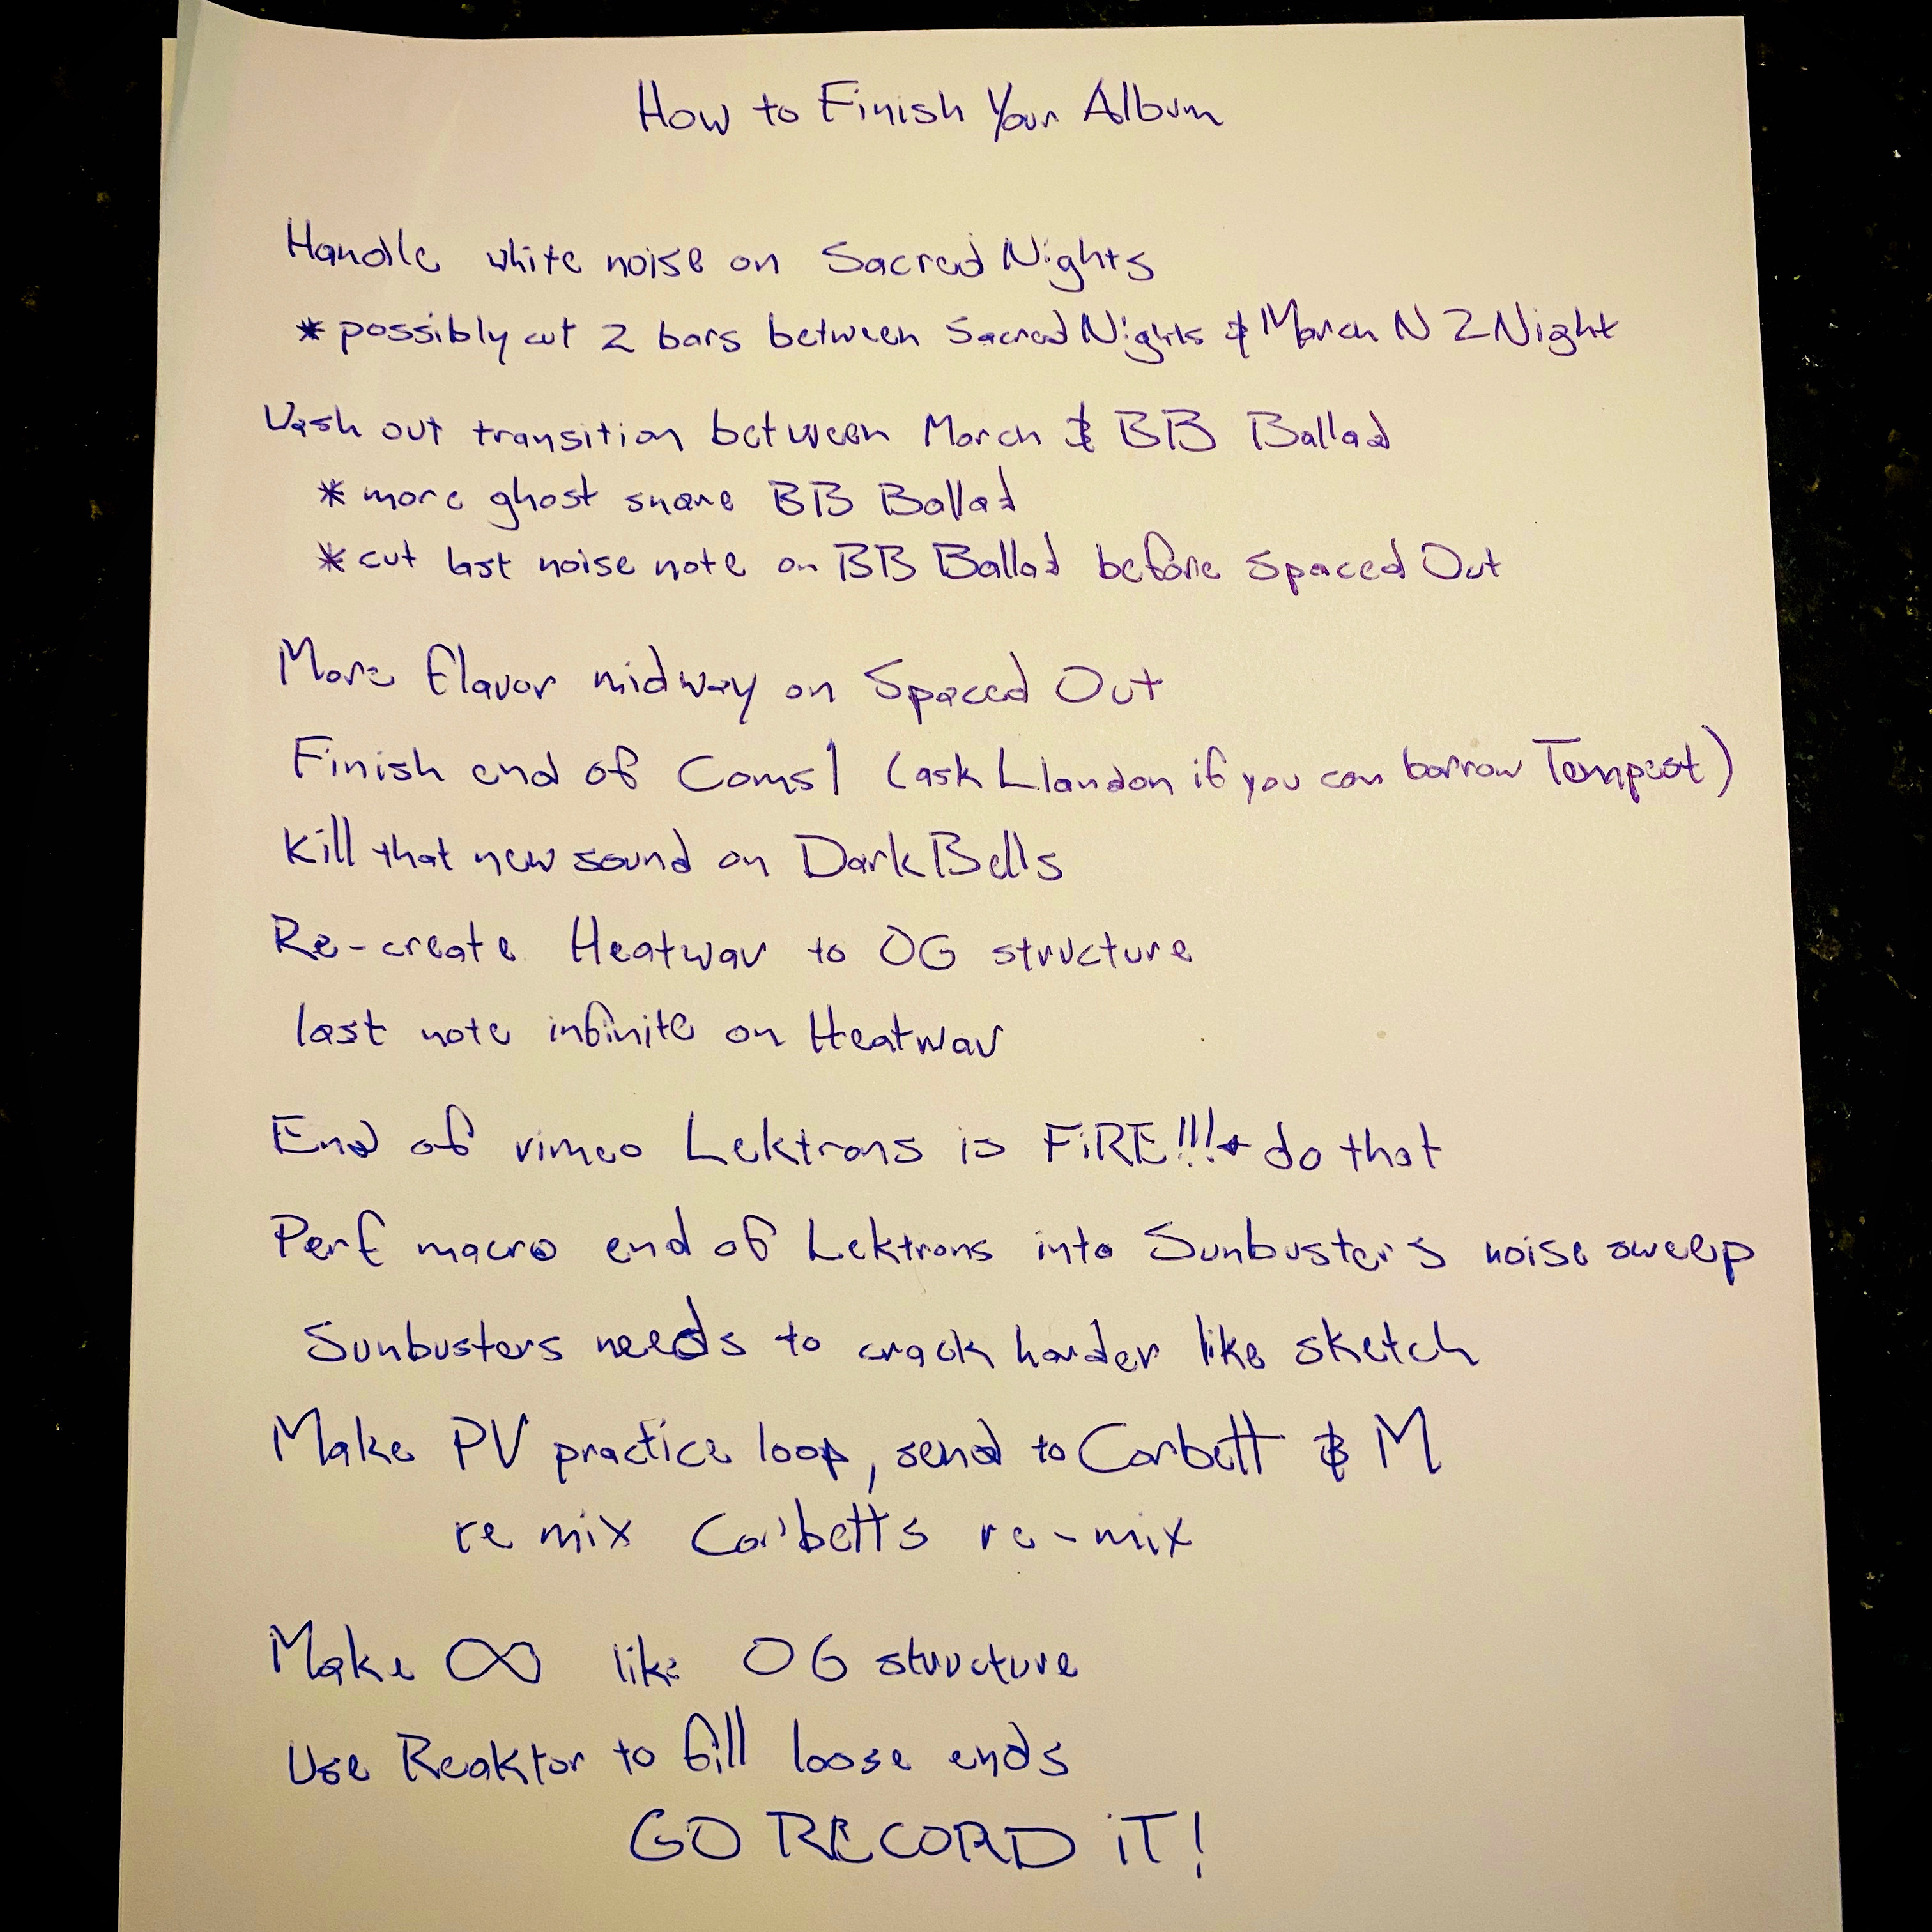 How to Finish Your Album
Handle white noise on Sacred Nights
* possibly cut 2 bars between Sacred Nights & March N 2 Night
Wash out transition between March & BB Ballad
* more ghost snare BB Ballad
* cut last noise note on BB Ballad before Spaced Out
More flavor midway on Spaced Out
Finish end of Coms1 (ask Llandon if you can borrow Tempest)
Kill that new sound on Dark Bells
Re-create Heatwav to OG structure
last note infinite on Heatwav
End of vimeo Lektrons is FiRE!!! do that
Perf macro end of Lektrons into Sunbusters noise sweep
Sunbusters needs to crack harder like sketch
Make PV practice loop, send to Corbett & M
re mix Corbetts re-mix
Make ∞ like OG structure
Use Reaktor to fill loose ends
GO RECORD iT!